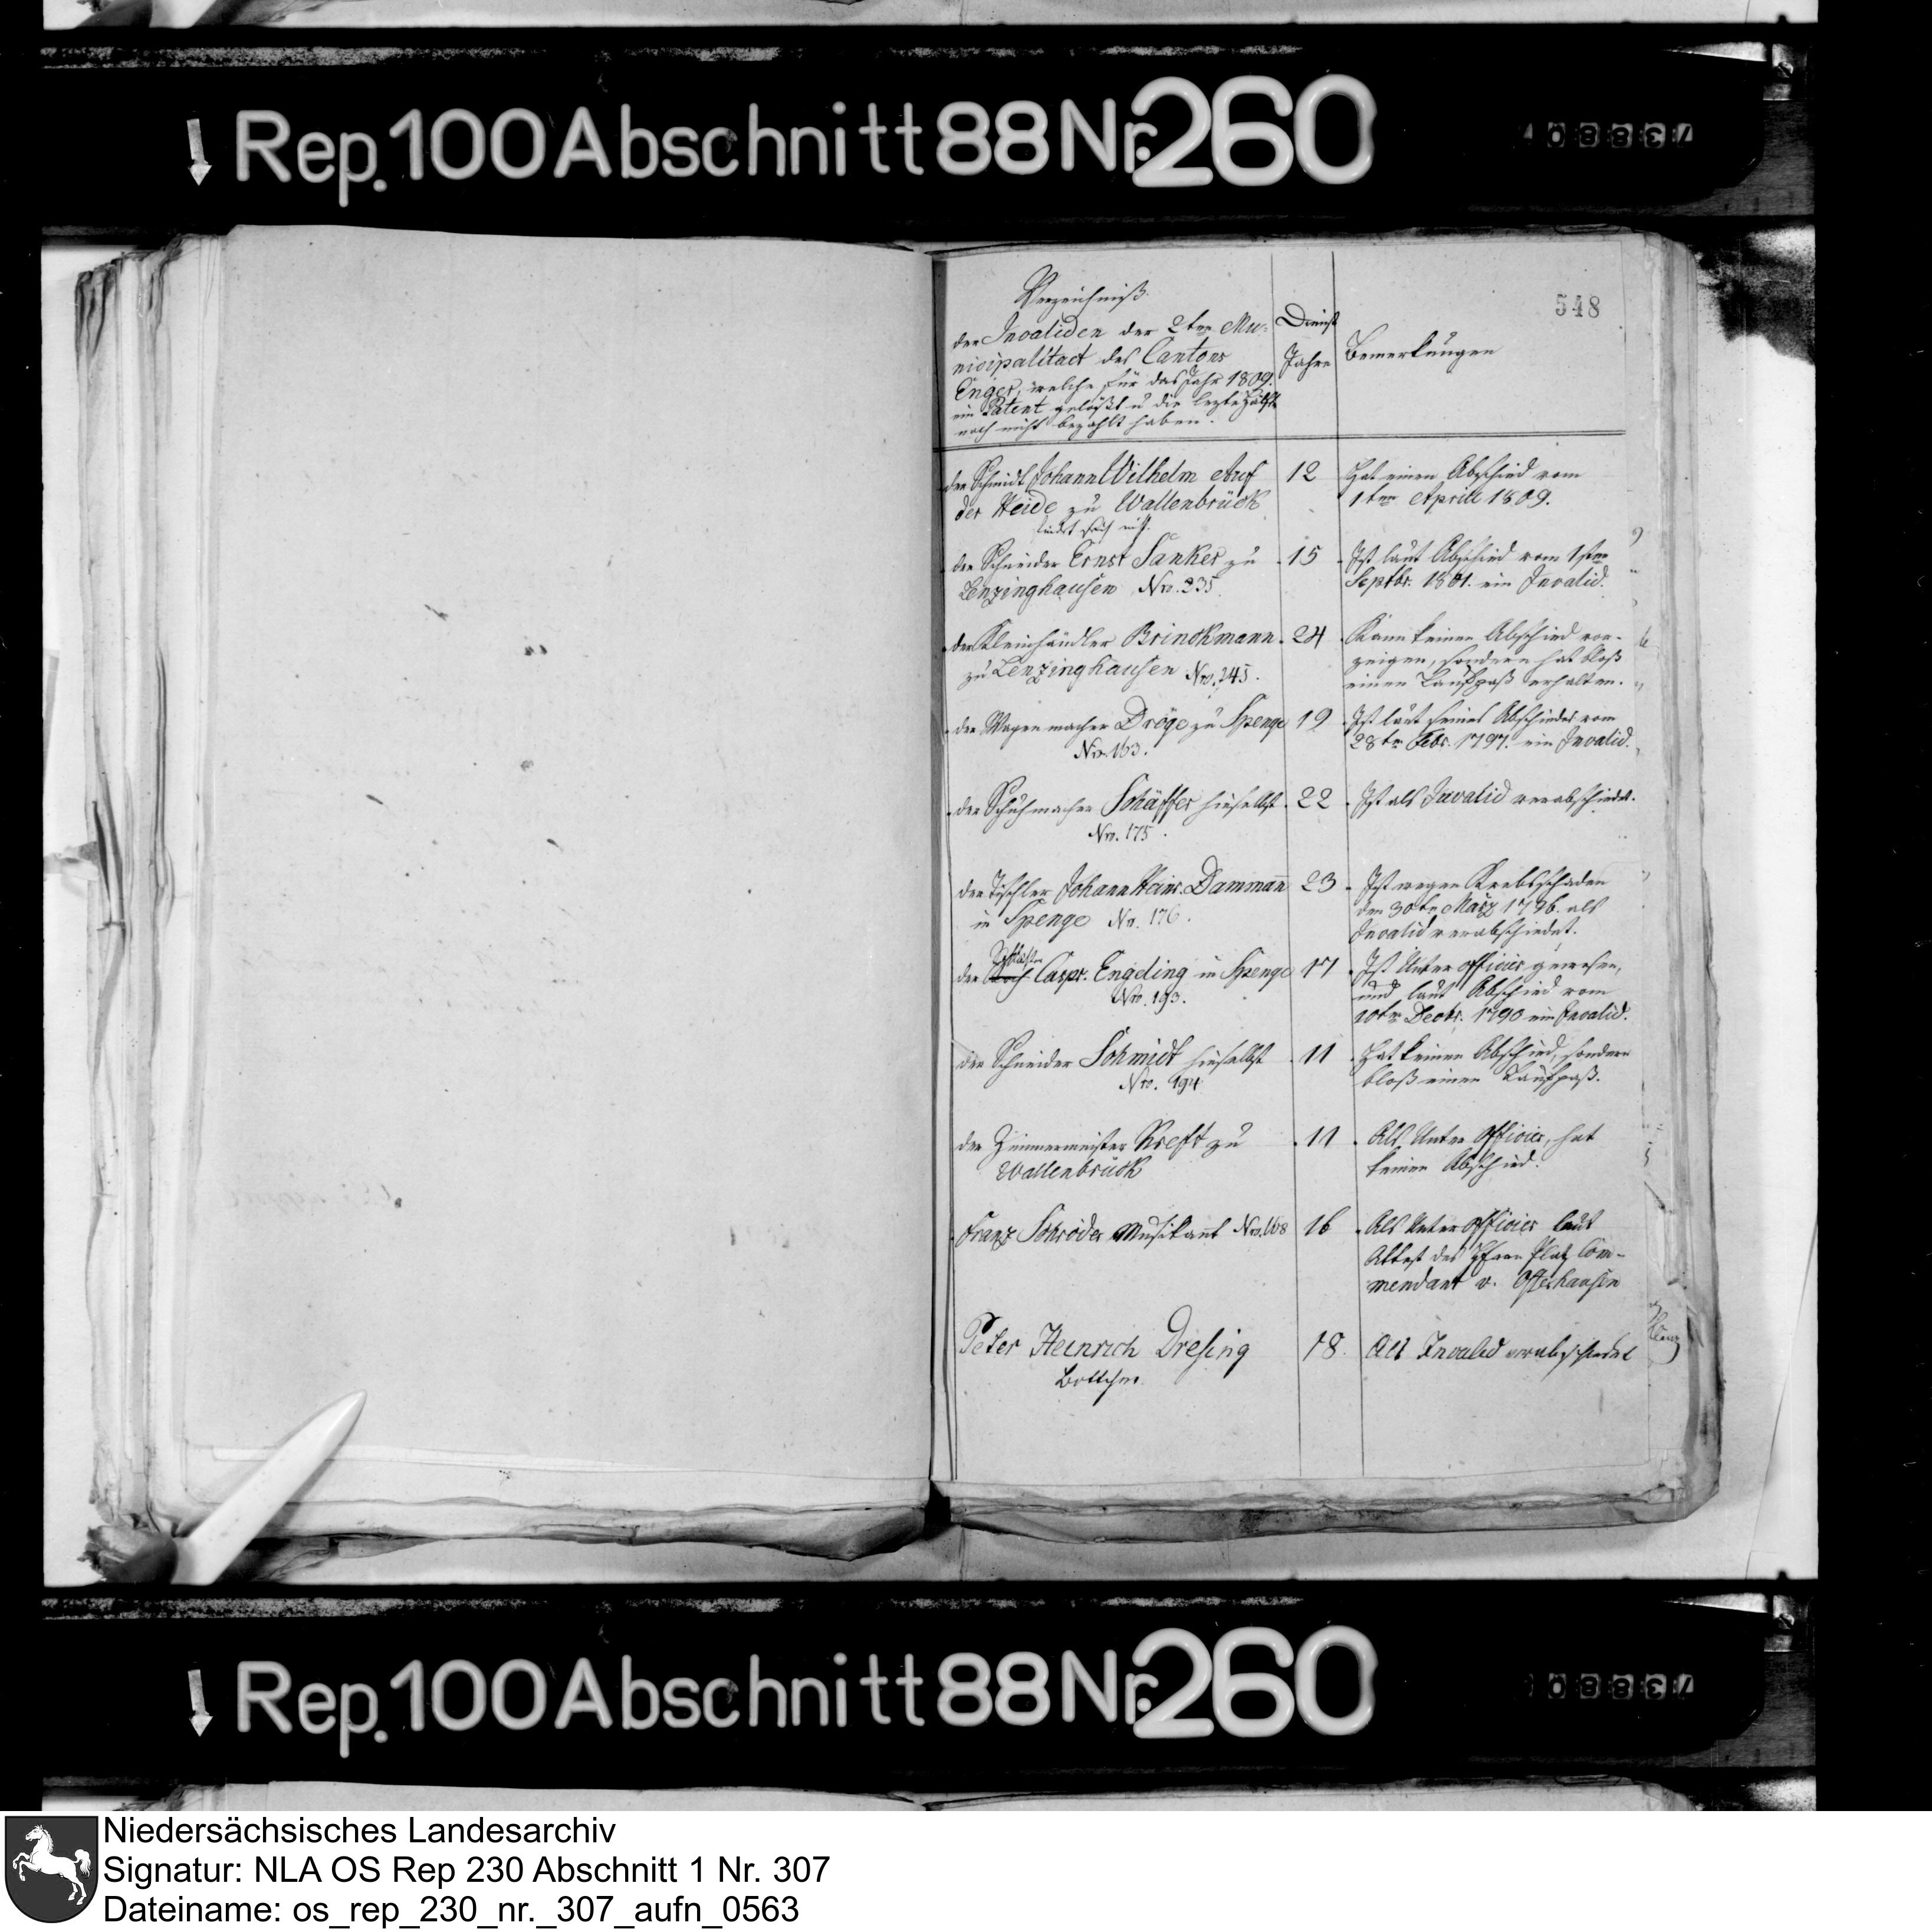 Rep. 100 Abschnitt 88 Nr. 260
73880
548
Verzeichniß
der Invaliden der 2ten Mu-
nicipalitaet des Cantons
Enger, welche für das Jahr 1809.
ein Patent gelößt u die lezte Hälfte
noch nicht bezahlt haben.
Dienst
Jahre
Bemerkungen
der Schmidt Johann Wilhelm Auf
der Heide zu Wallenbrück
findet sich nicht.
12
Hat einen Abschied vom
1ten Aprill 1809.
der Schneider Ernst Sanker zu
Lenzinghausen Nro. 235.
15
Ist laut Abschied vom 1sten
Septbr. 1801. ein Invalid.
der Kleinhändler Brinckmann
zu Lenzinghausen Nro. 245.
24
Kann keinen Abschied vor-
zeigen, sondern hat bloß
einen Laufpaß erhalten.
der Wagenmacher Dröge zu Spenge
Nro. 163.
19
Ist laut seines Abschiedes vom
28ten Febr. 1797. ein Invalid.
der Schuhmacher Schäffer hieselbst
Nro. 175.
22
Ist als Invalid verabschiedet.
der Tischler Johann Heinr. Dammann
in Spenge Nr. 176.
23
Ist wegen Krebsschaden
den 30ten März 1796. als
Invalid verabschiedet.
der Caspr. Engeling in Spenge
Nro. 193.
17
Ist Unter officier gewesen,
und laut Abschied vom
10ten Decbr. 1790 ein Invalid.
der Schneider Schmidt hieselbst
Nro. 194
11
Hat keinen Abschied, sondern
bloß einen Laufpaß.
der Zimmermeister Kreft zu
Wallenbrück
11
Als Unter Officier, hat
keinen Abschied.
Franz Schröder Musikant Nro. 168
16
Als Unter officier laut
Attest des Herrn Platz Com-
mendant v. Offerhausen
Peter Heinrich Dresing
Bottcher
18.
Als Invalid verabschiedet
Rep. 100 Abschnitt 88 Nr. 260
73880
Niedersächsisches Landesarchiv
Signatur: NLA OS Rep 230 Abschnitt 1 Nr. 307
Dateiname: os_rep_230_nr._307_aufn_0563